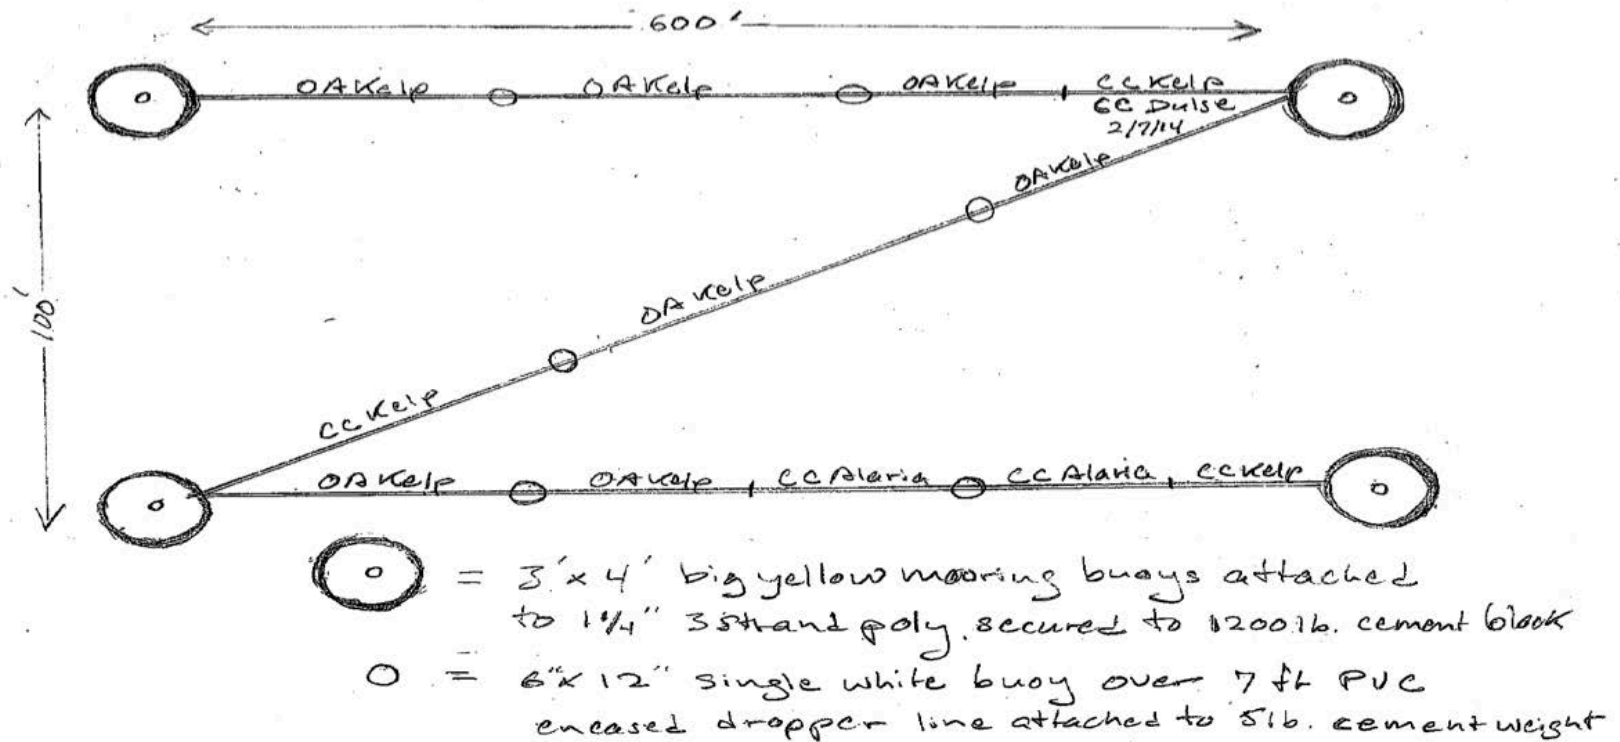 600'
OAKelp OAKelp OAKelp CC Kelp
GC Dulse
2/7/14
OAKelp
100'
OAKelp
CC Kelp
OAKelp OAKelp CC Alaria CC Alaria CC Kelp
= 3'x 4' big yellow mooring buoys attached
to 1 1/4" 3 strand poly. secured to 1200 lb. cement block
= 6"x 12" single white buoy over 7 ft PVC
encased dropper line attached to 5 lb. cement weight